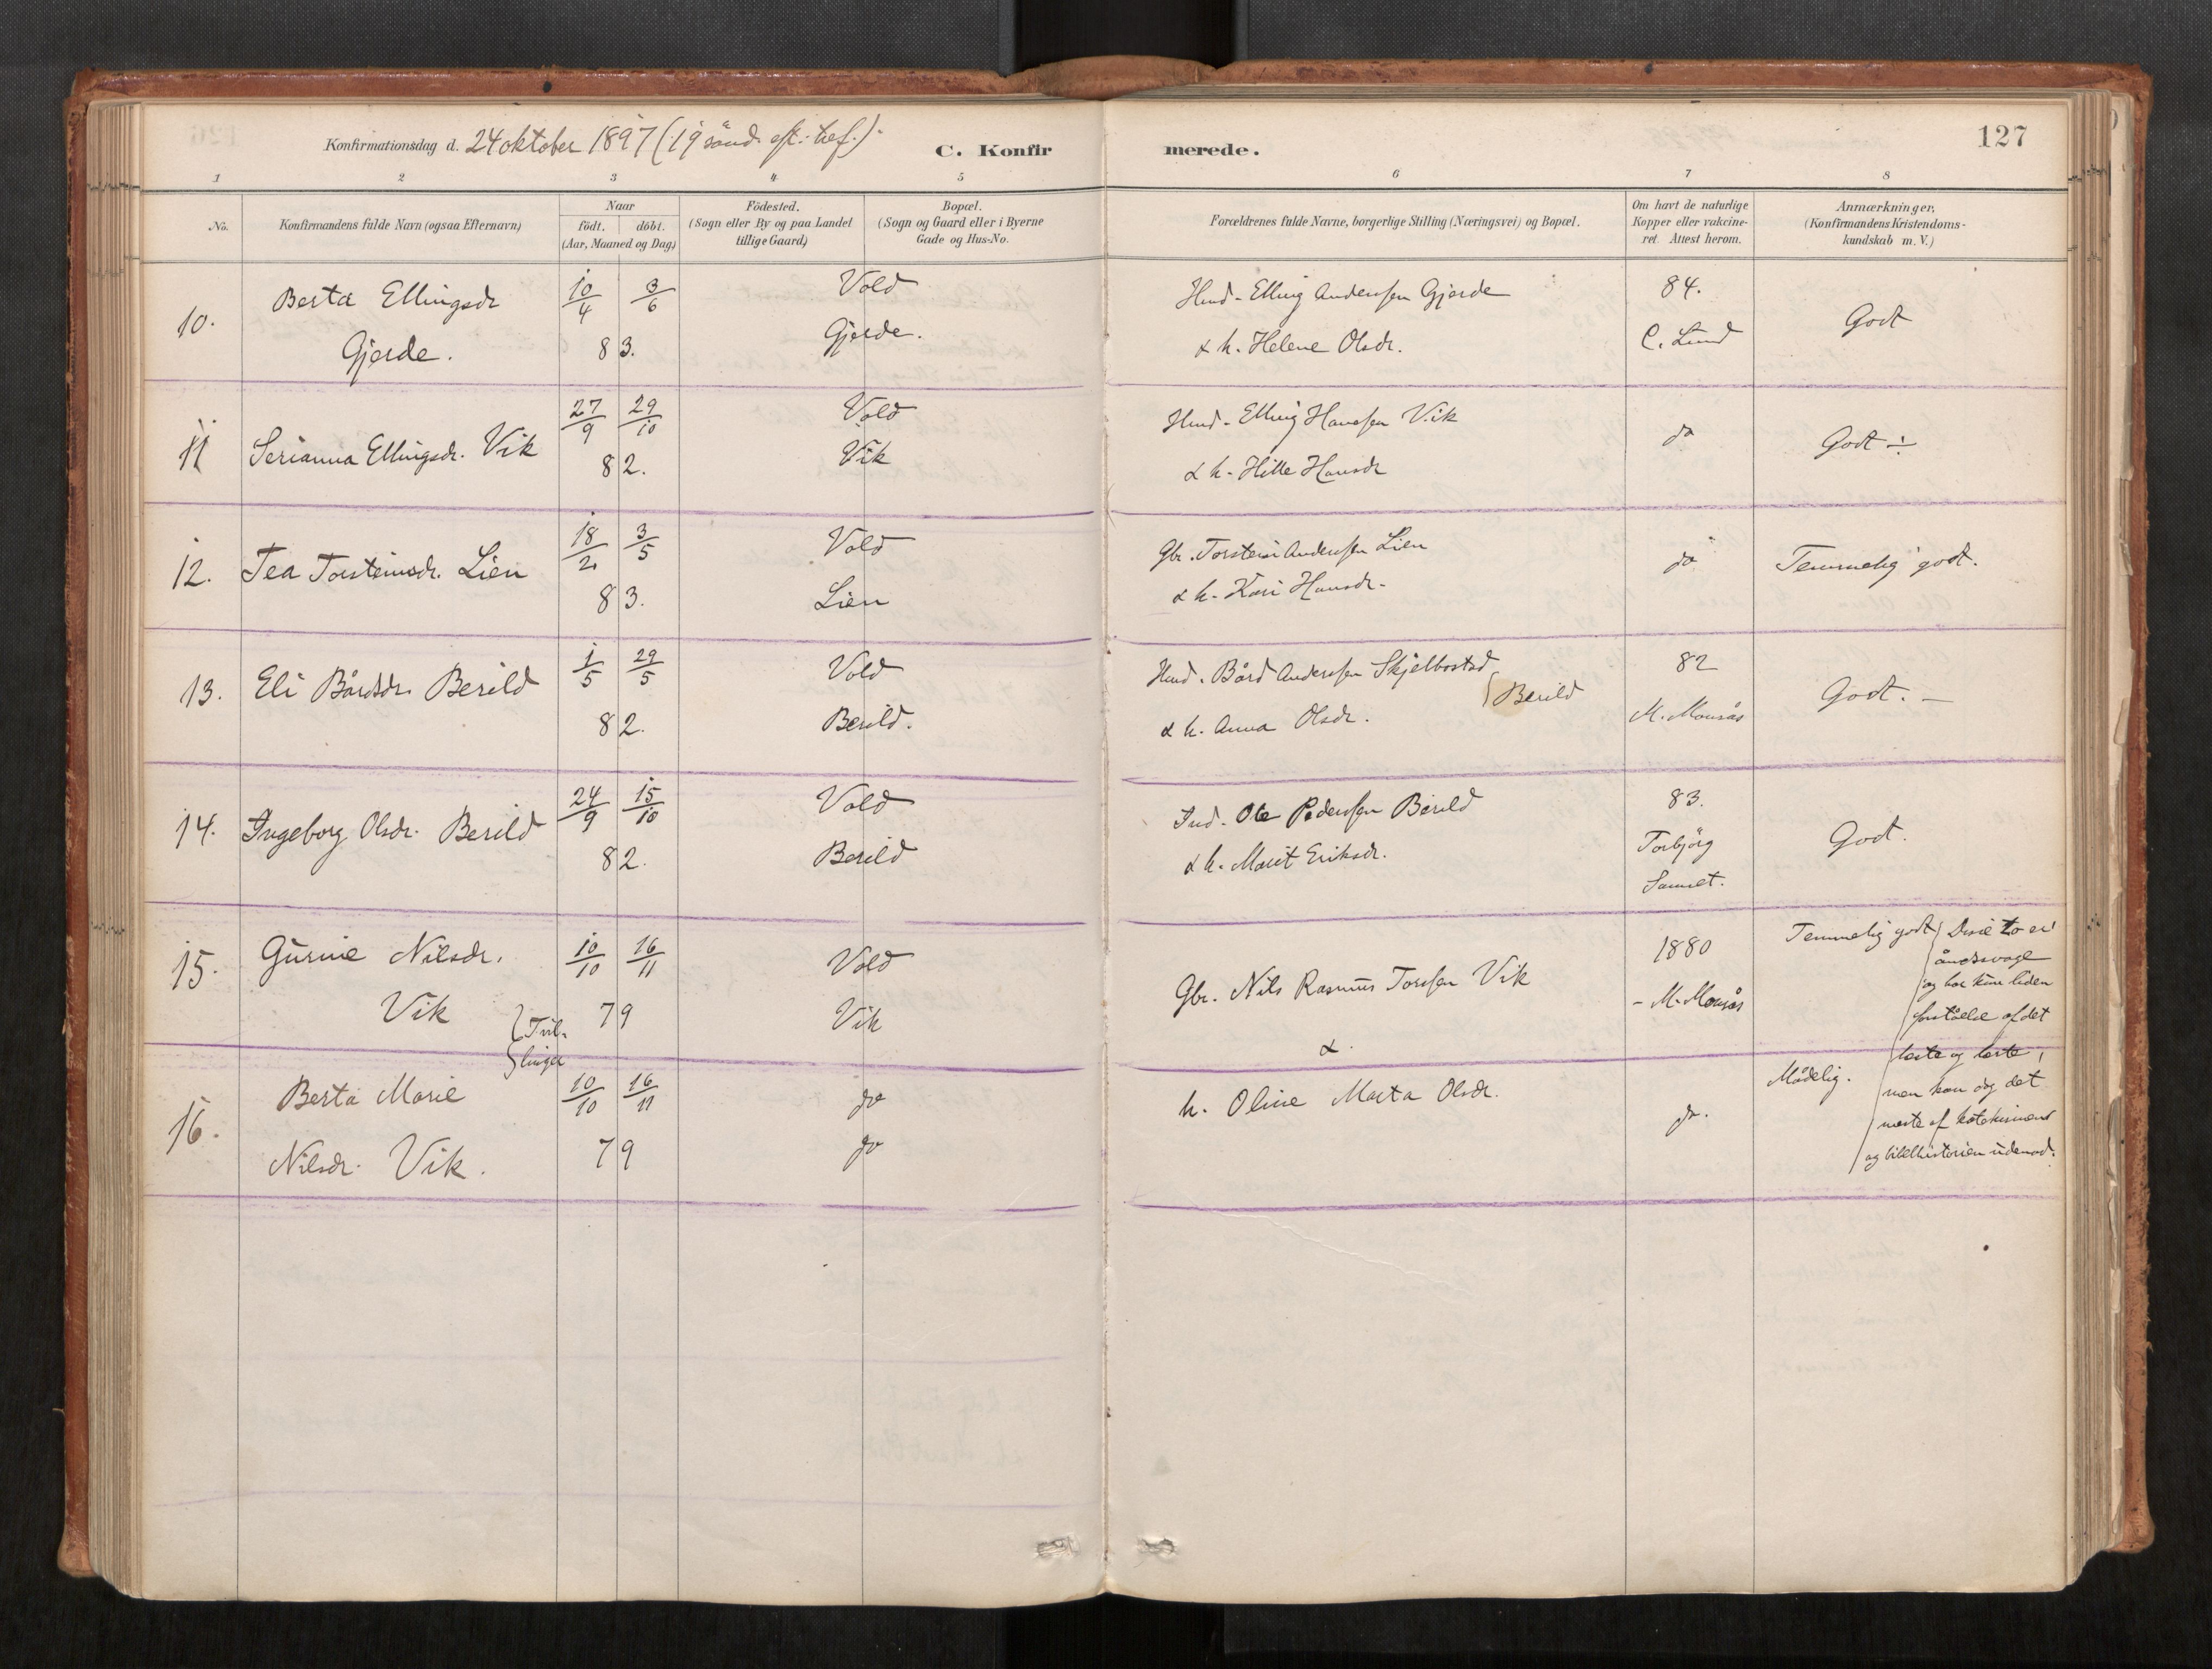 127
Konfirmationsdag d. 24 oktober 1897 (19 sönd. eft. tref.).
C. Konfirmerede.
1 2 3 4 5 6 7 8
No.
Konfirmandens fulde Navn (ogsaa Efternavn)
Naar
födt. döbt.
(Aar, Maaned og Dag)
Födested.
(Sogn eller By og paa Landet
tillige Gaard)
Bopæl.
(Sogn og Gaard eller i Byerne
Gade og Hus-No.
Forældrenes fulde Navne, borgerlige Stilling (Næringsvei) og Bopæl.
Om havt de naturlige
Kopper eller vakcine-
ret Attest herom.
Anmærkninger,
(Konfirmandens Kristendoms-
kundskab m. V.)
10. Berta Ellingsdr 10/4 3/6 Vold Hmd. Elling Andersen Gjerde 84. Godt
Gjerde. 83. Gjerde. & h. Helene Olsdr. C. Lund
11 Serianna Ellingsdr. Vik 27/9 29/10 Vold Hmd. Elling Hanssen Vik do Godt ÷
82. Vik & h. Hille Hansdr
12. Tea Torsteinsdr. Lien 18/2 3/5 Vold Gbr. Torstein Andersen Lien do Temmelig godt.
83. Lien & h. Kari Hansdr.
13. Eli Bårdsdr. Berild 1/5 29/5 Vold Hmd. Bård Andersen Skjelbostad 82 Godt. –
Berild
82. Berild. & h. Anna Olsdr. M. Monsås
14. Ingeborg Olsdr. Berild 24/9 15/10 Vold Ind. Ole Pedersen Berild 83. Godt.
82. Berild & h. Marit Eriksdr. Torbjörg
Samset.
15. Gurine Nilsdr. 10/10 16/11 Vold Gbr. Nils Rasmus Torssen Vik 1880 Temmelig godt
Vik 79 Vik & M. Monsås
Tvil-
linger
16. Berta Marie 10/10 16/11 do h. Oline Marta Olsdr. do. Mådelig.
Nilsdr. Vik. 79 do
Disse to er
åndssvage
og har kun liden
forståelse af det
læste og lærte,
men kan dog det
meste af katekismens
og bibelhistorien udenad.